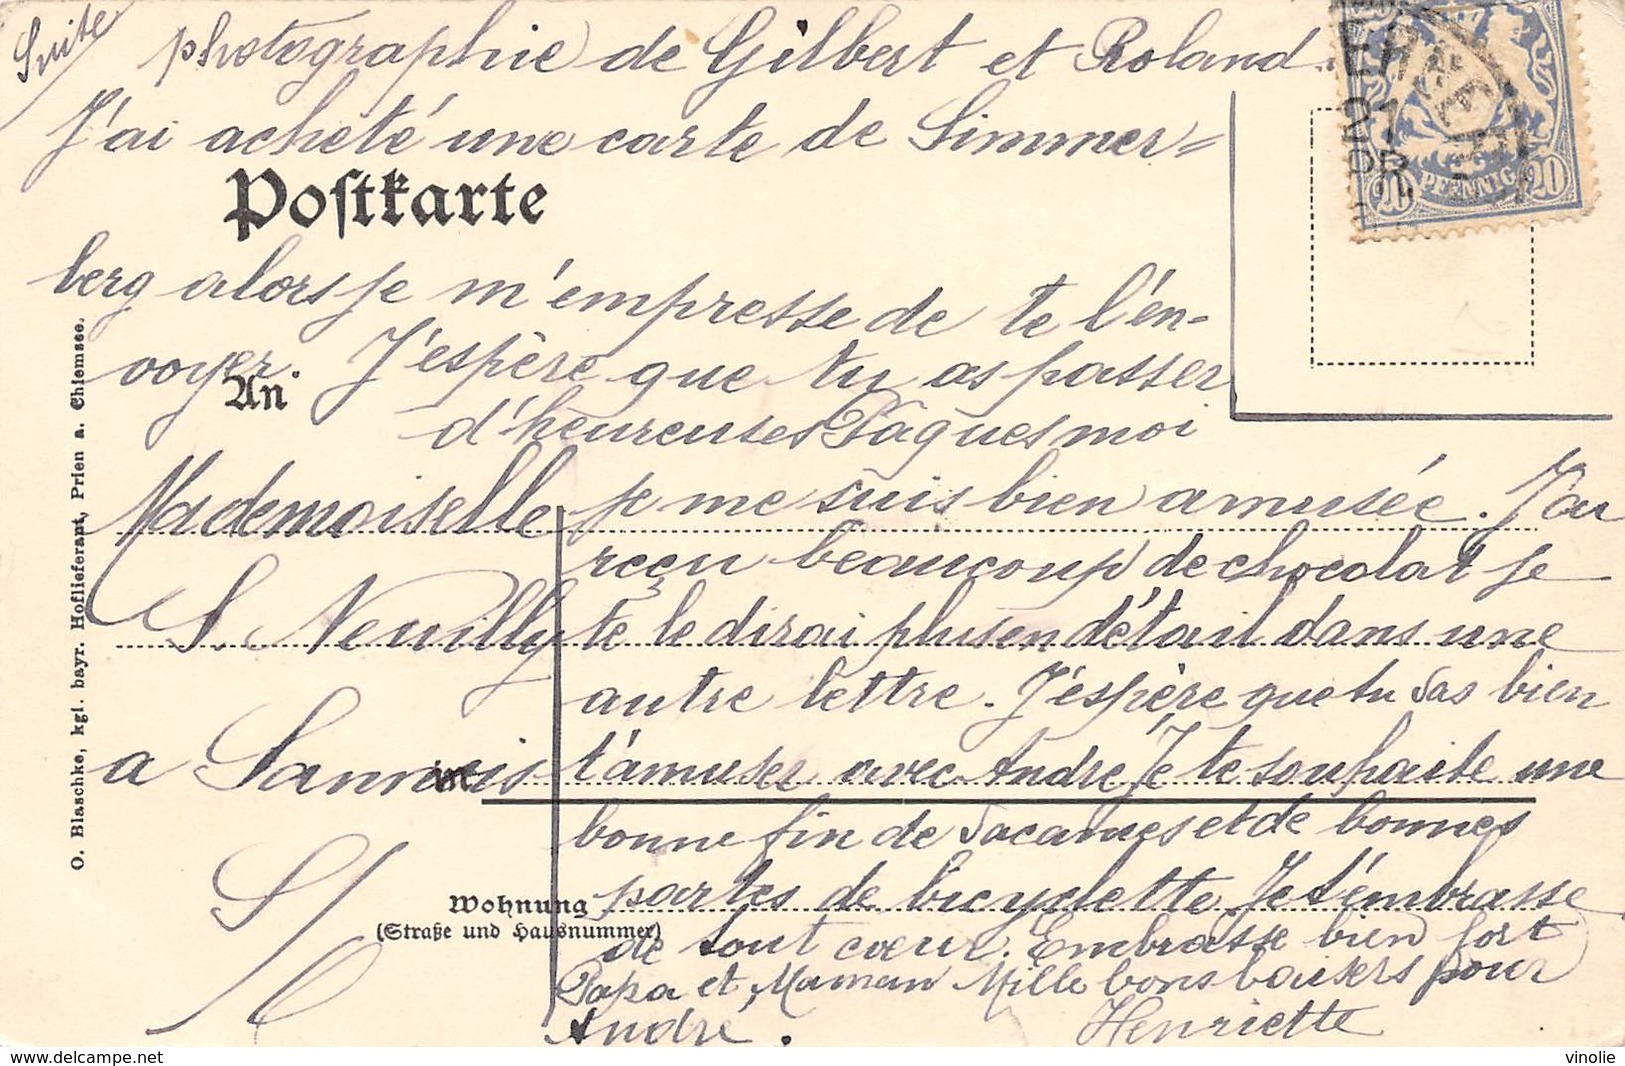 Suite
photographie de Gilbert et Roland.
J'ai acheté une carte de Simmer=
Postkarte
berg alors je m'empresse de te l'én-
voyer. J'éspère que tu as passer
An
d'heureuses Pâques moi
Mademoiselle
je me suis bien amusée. J'ai
reçu beaucoup de chocolat je
S. Neuilly
te le dirai plus en détail dans une
autre lettre. J'éspère que tu vas bien
a Sannois
t'amuser avec André Je te souhaite une
in
bonne fin de vacances et de bonnes
S/
partes de bicyclette Je t'émbrasse
Wohnung
(Straße und Hausnummer)
de tout cœur. Embrasse bien fort
Papa et Maman Mille bons baisers pour
André. Henriette
O. Blaschke, kgl. bayr. Hoflieferant, Prien a. Chiemsee.
20 PFENNIG 20
vinolie — delcampe.net